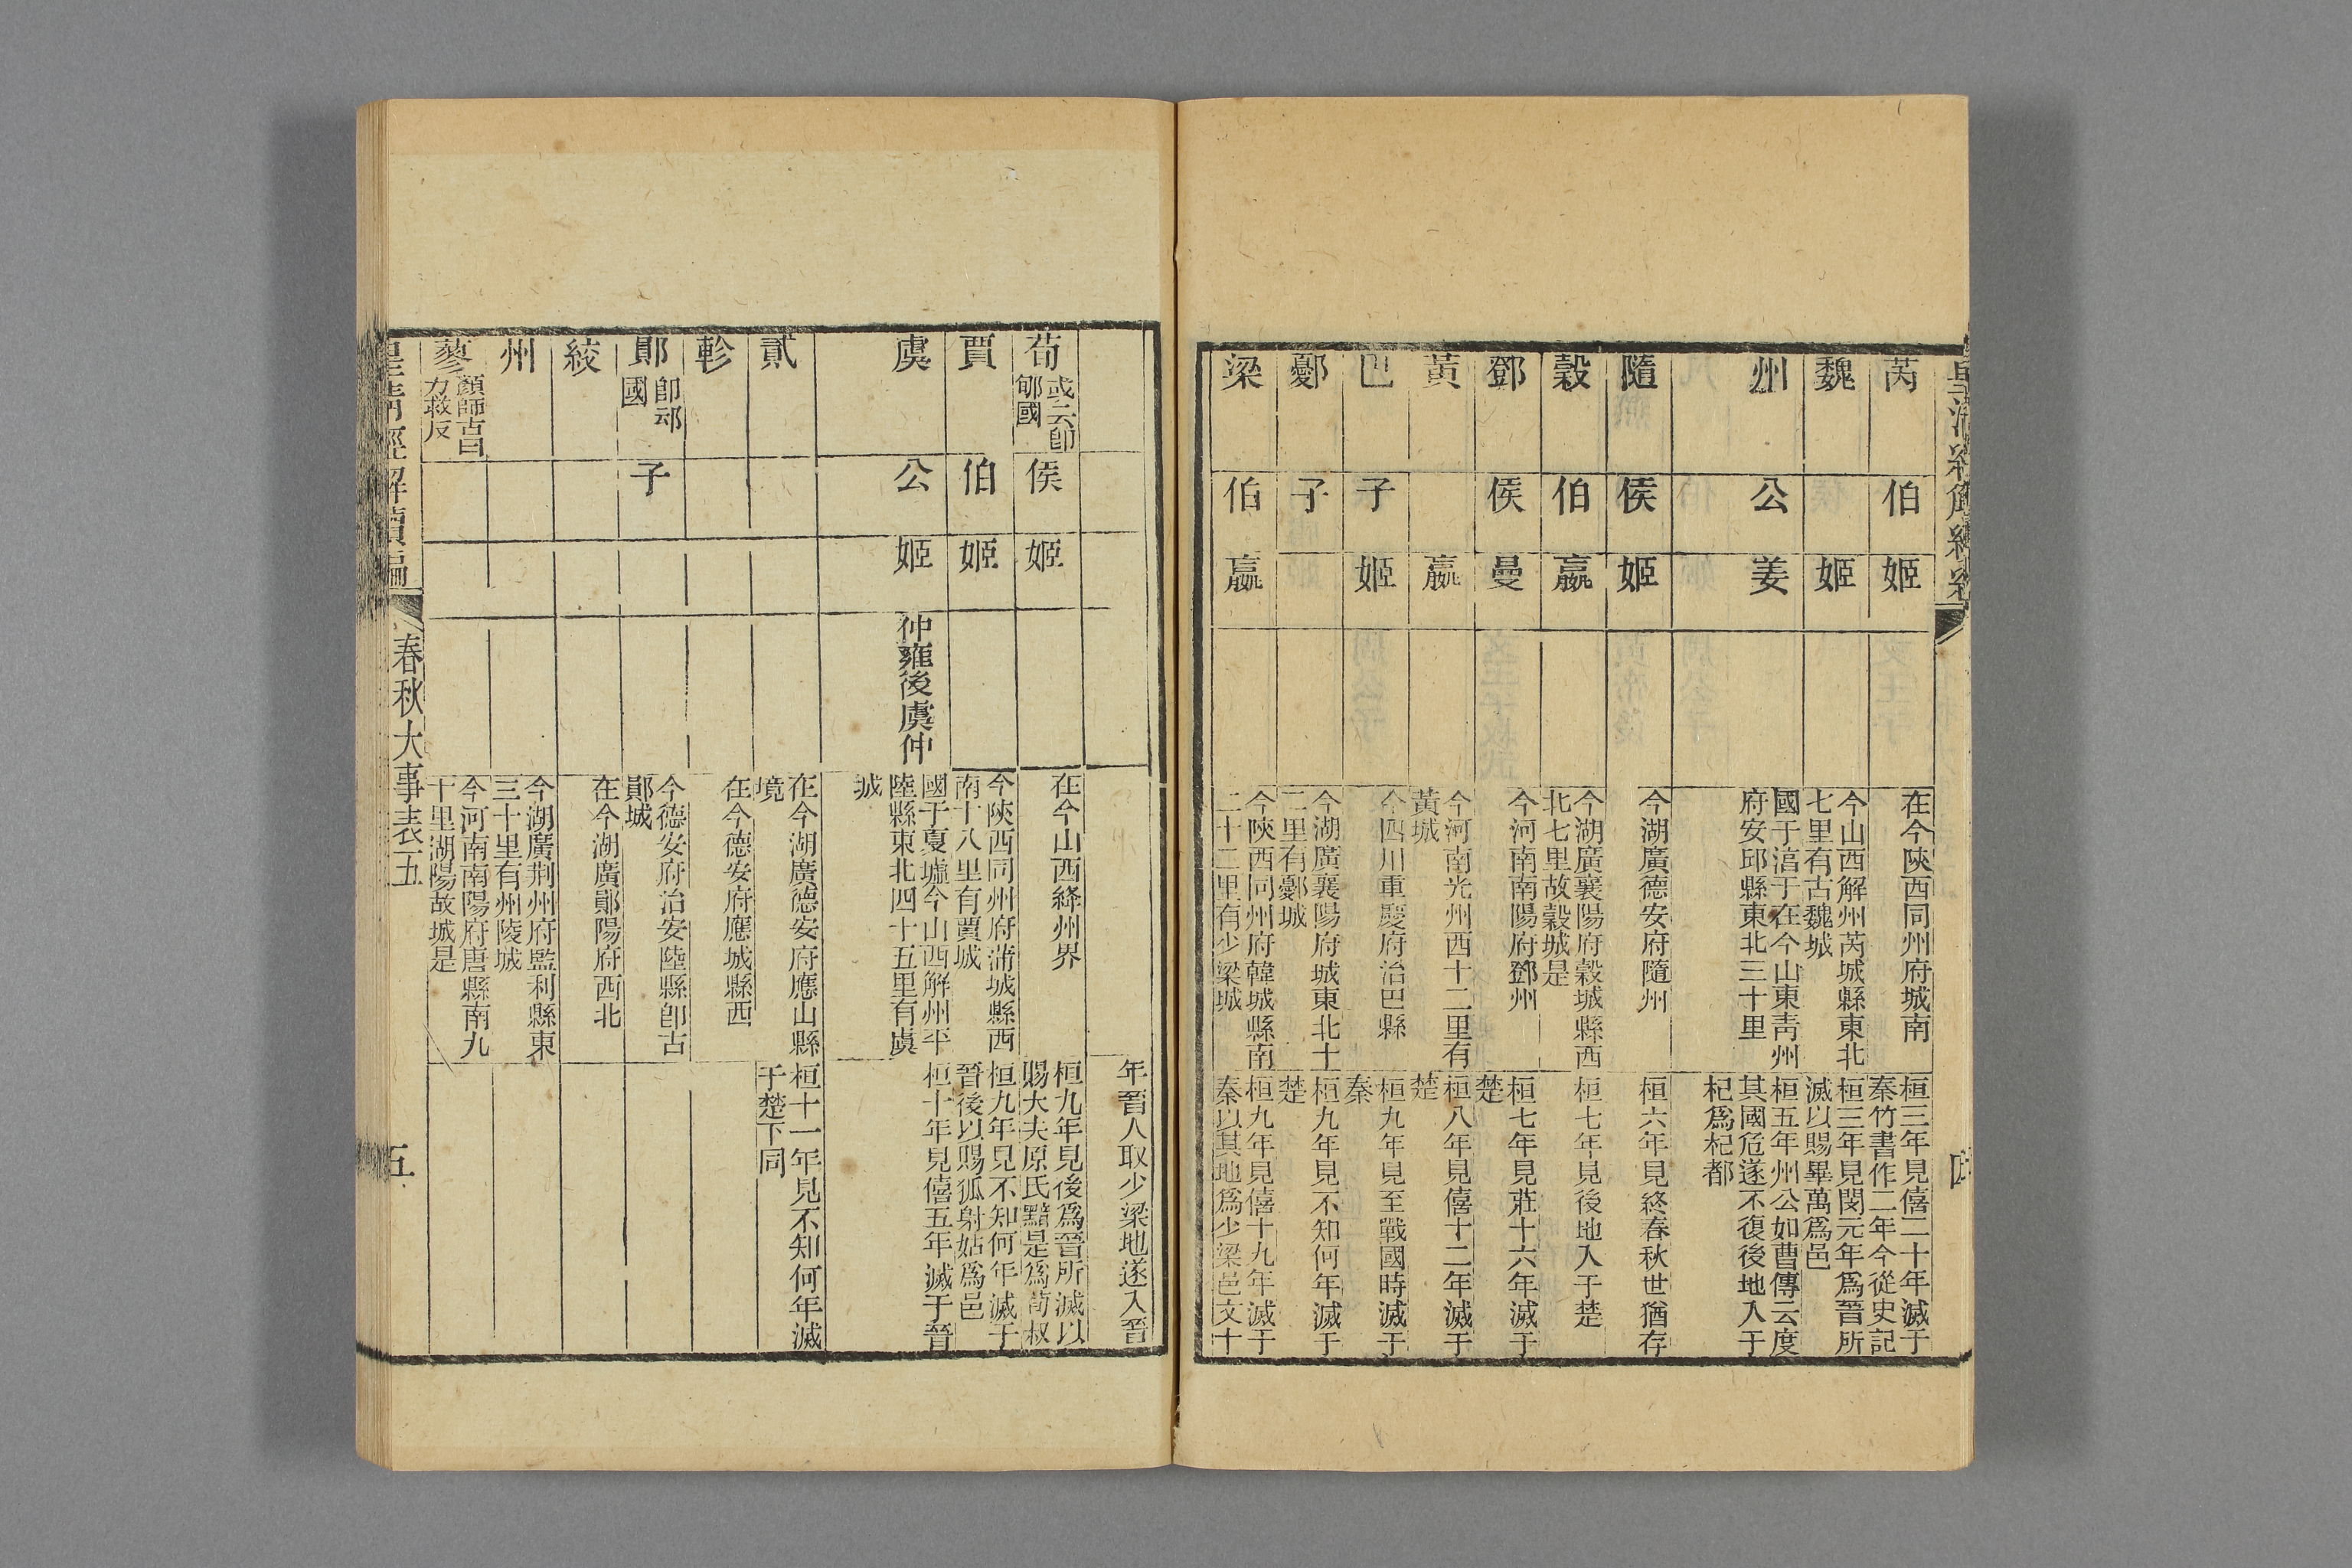 芮
伯
姬
在今陝西同州府城南
桓三年見僖二十年滅于
秦竹書作二年今從史記
魏
姬
今山西解州芮城縣東北
七里有古魏城
桓三年見閔元年爲晉所
滅以賜畢萬爲邑
州
公
姜
國于淳于在今山東靑州
府安邱縣東北三十里
桓五年州公如曹傳云度
其國危遂不復後地入于
杞爲杞都
隨
侯
姬
今湖廣德安府隨州
桓六年見終春秋世猶存
穀
伯
嬴
今湖廣襄陽府穀城縣西
北七里故穀城是
桓七年見後地入于楚
鄧
侯
曼
今河南南陽府鄧州
桓七年見莊十六年滅于
楚
黃
嬴
今河南光州西十二里有
黃城
桓八年見僖十二年滅于
楚
巴
子
姬
今四川重慶府治巴縣
桓九年見至戰國時滅于
秦
鄾
子
今湖廣襄陽府城東北十
二里有鄾城
桓九年見不知何年滅于
楚
梁
伯
嬴
今陝西同州府韓城縣南
二十二里有少梁城
桓九年見僖十九年滅于
秦以其地爲少梁邑文十
年晉人取少梁地遂入晉
荀
或云卽
郇國
侯
姬
在今山西絳州界
桓九年見後爲晉所滅以
賜大夫原氏黯是爲荀叔
賈
伯
姬
今陝西同州府蒲城縣西
南十八里有賈城
桓九年見不知何年滅于
晉後以賜狐射姑爲邑
虞
公
姬
仲雍後虞仲
國于夏墟今山西解州平
陸縣東北四十五里有虞
城
桓十年見僖五年滅于晉
貳
在今湖廣德安府應山縣
境
桓十一年見不知何年滅
于楚下同
軫
在今德安府應城縣西
鄖
卽䢵
國
子
今德安府治安陸縣卽古
鄖城
絞
在今湖廣鄖陽府西北
州
今湖廣荆州府監利縣東
三十里有州陵城
蓼
顏師古曰
力救反
今河南南陽府唐縣南九
十里湖陽故城是
皇淸經解續編
春秋大事表五
五